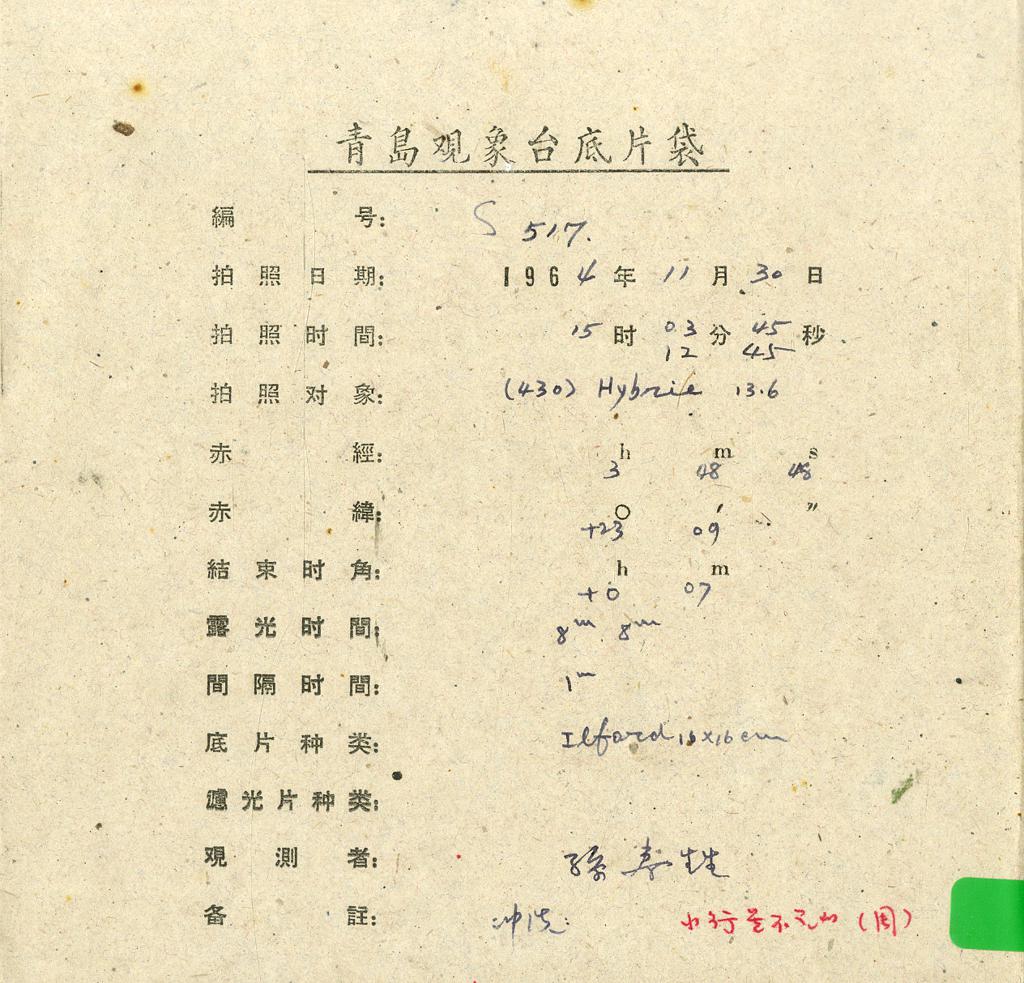 青島观象台底片袋
編号: S 517.
拍照日期: 1964年11月30日
拍照时間: 15时03分45秒
12 45
拍照对象: (430) Hybrie 13.6
赤經: h m s
3 48 48
赤緯: ○ ′ ″
+23 09
結束时角: h m
+0 07
露光时間: 8m 8m
間隔时間: 1m
底片种类: Ilford 16x16cm
濾光片种类:
观測者: 孫寿
备註: 冲洗: 小行星不 (周)